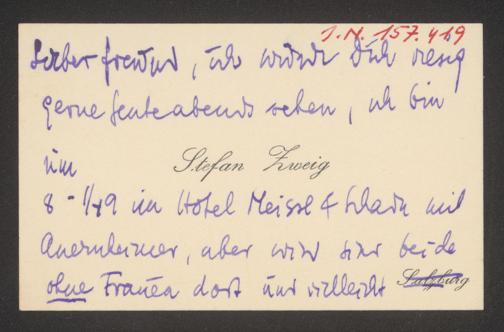 I.N. 157.419
Lieber Freund, ich würde Dich riesig
gerne heute abends sehen, ich bin
um
Stefan Zweig
8 - 1/49 im Hotel Meissl & Schadn mit
Auernheimer, aber wir sind beide
ohne Frauen dort und vielleicht
Salzburg